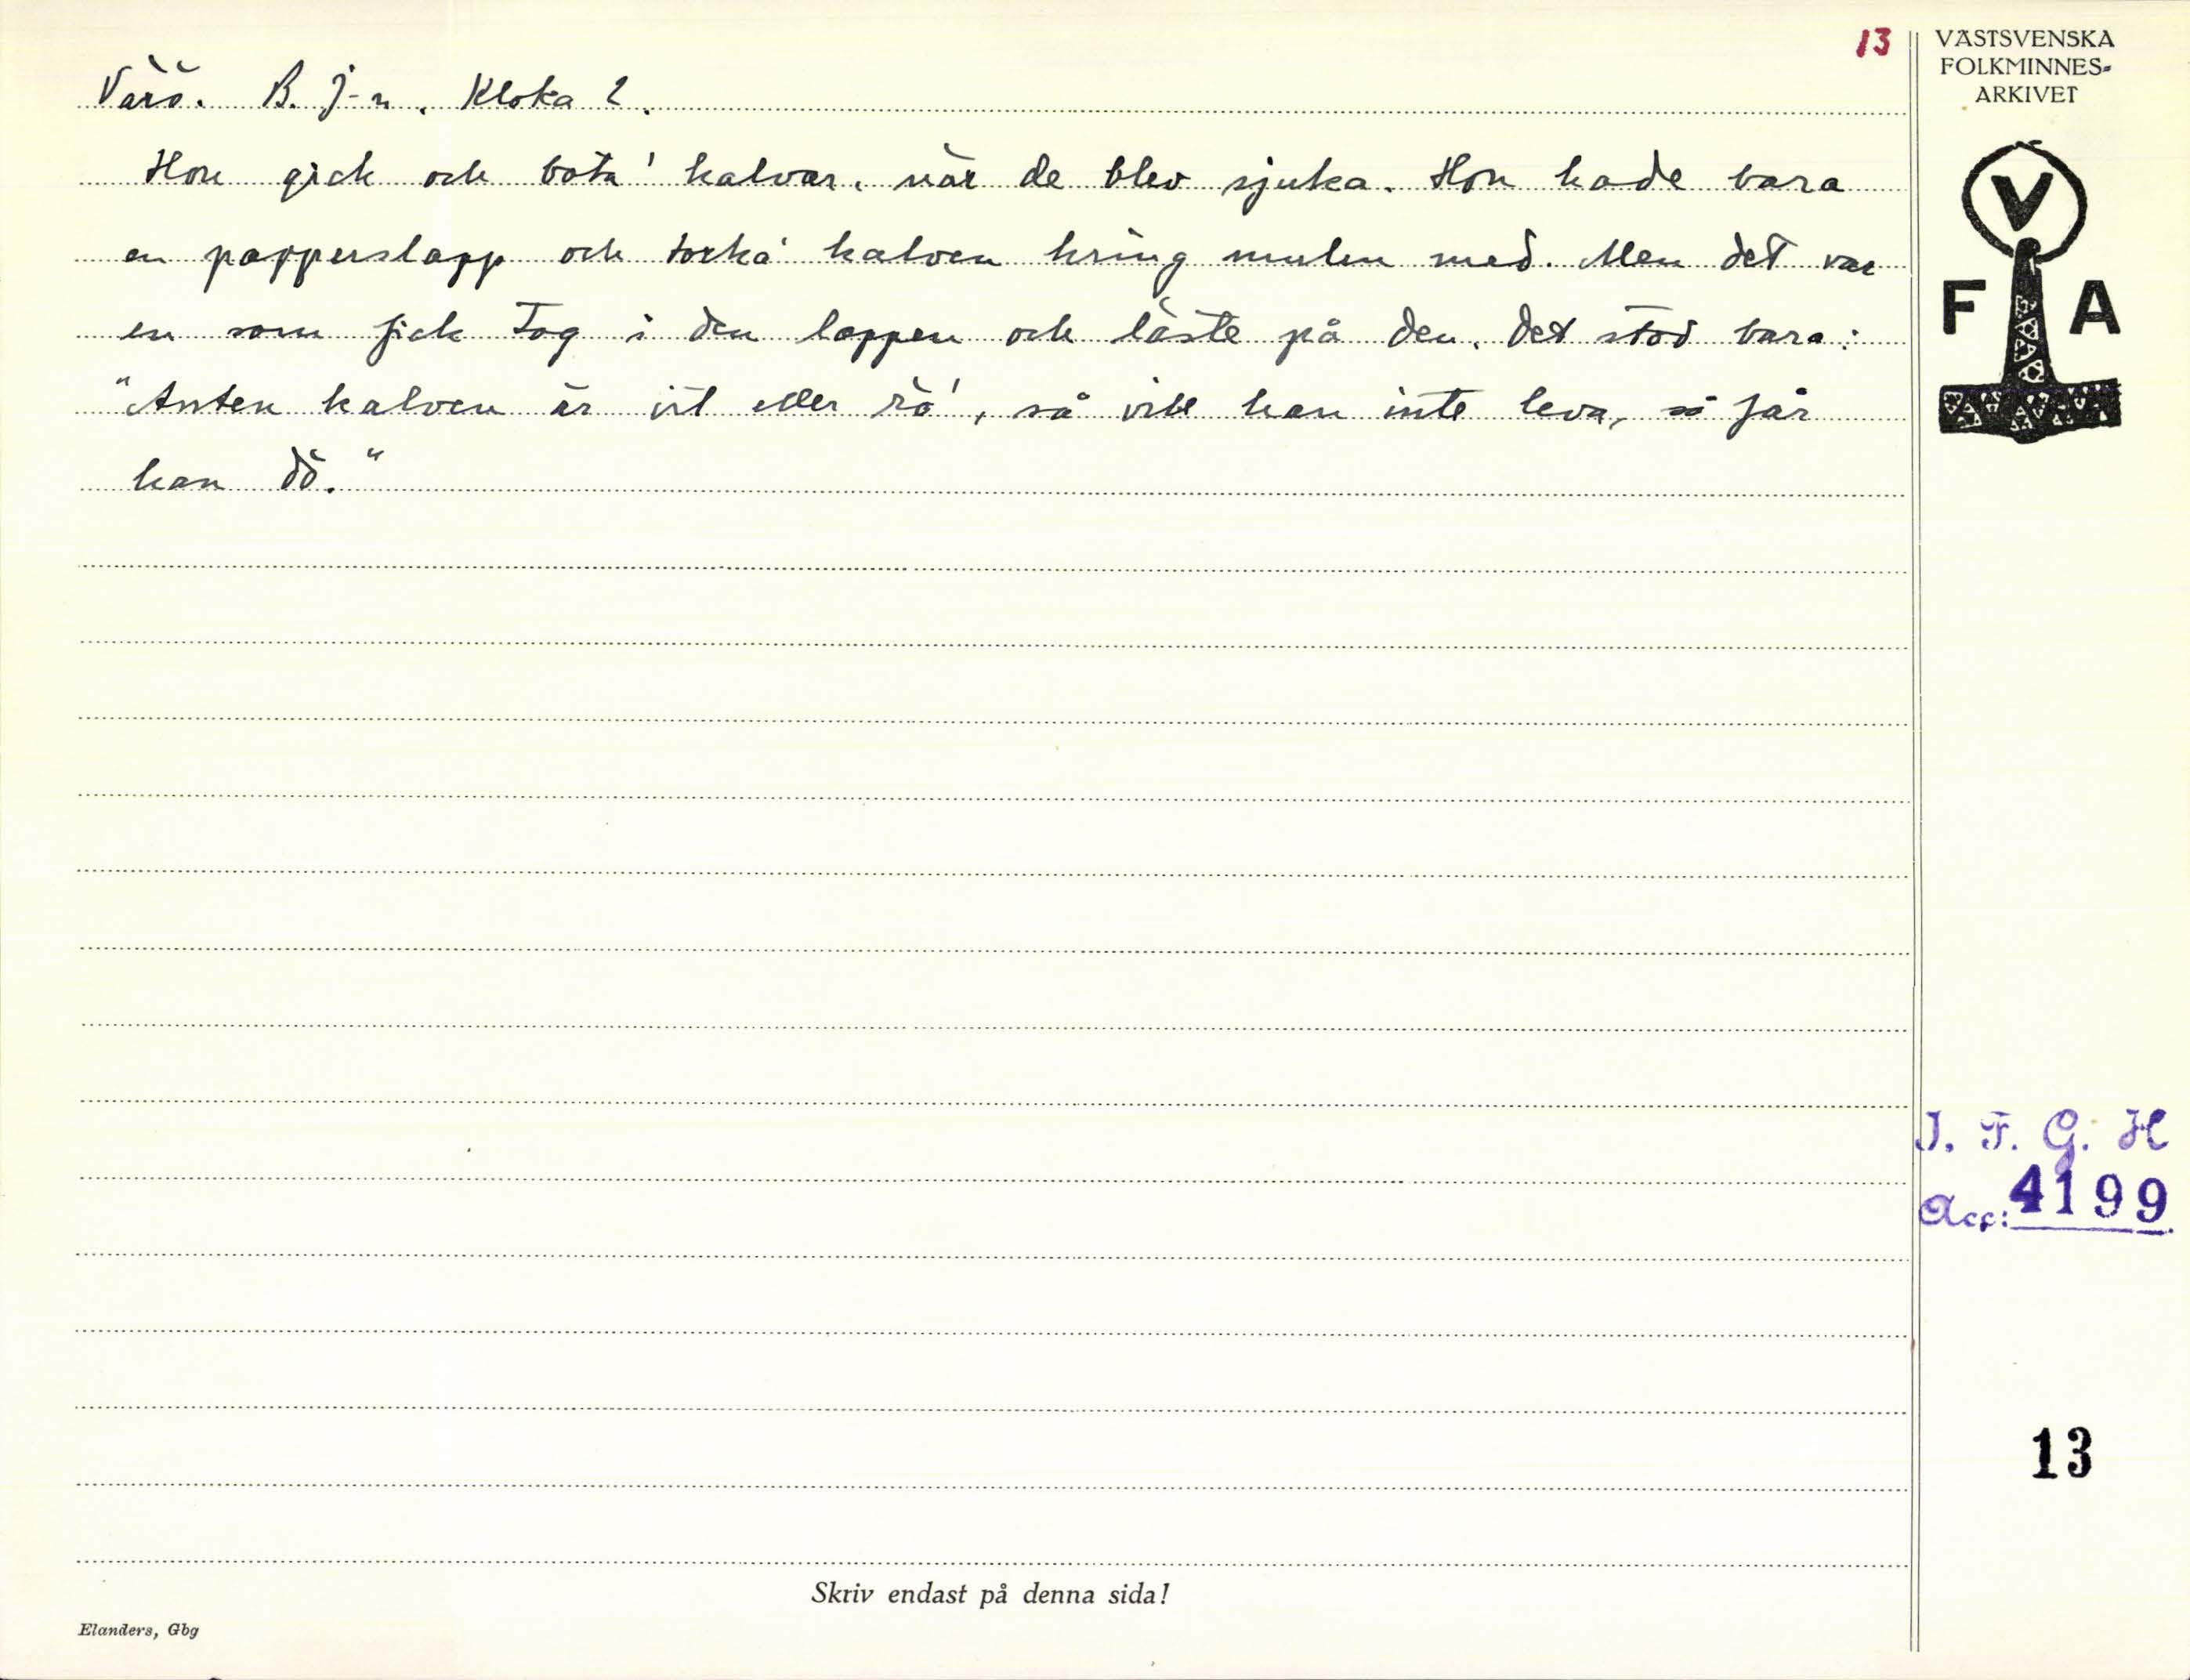 13
Värö. B. J-n. Kloka 2.
Hon gick och bota' kalvar, när de blev sjuka. Hon hade bara
en papperslapp och torka' kalven kring mulen med. Men det var
en som fick tag i den lappen och läste på den. Det stod bara:
"Anten kalven är vit eller rö', så vill han inte leva, så får
han dö."
VÄSTSVENSKA
FOLKMINNES-
ARKIVET
V
F A
I. F. G. H
Acc: 4199
13
Skriv endast på denna sida!
Elanders, Gbg